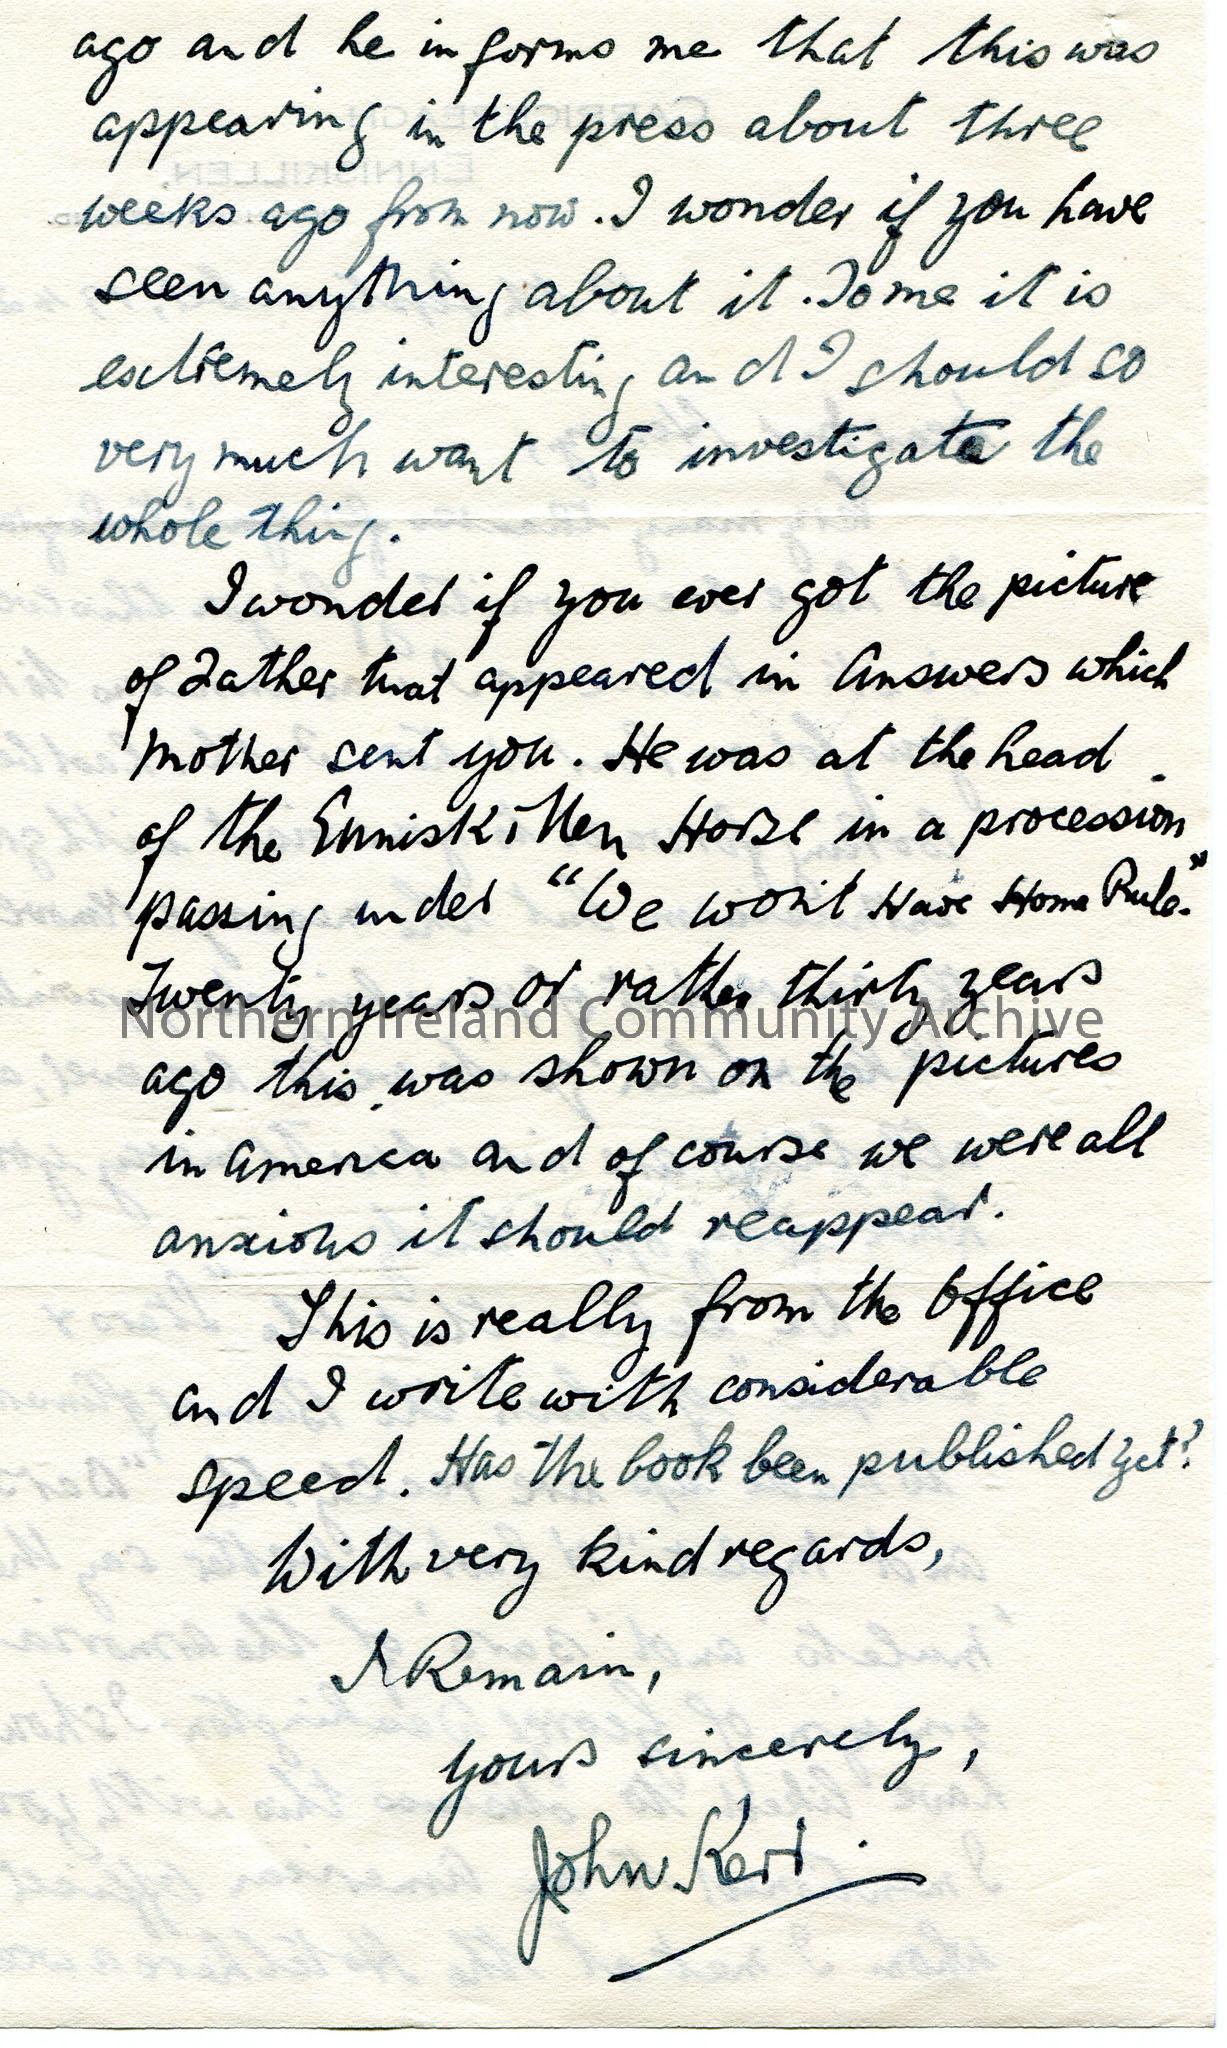 ago and he informs me that this was
appearing in the press about three
weeks ago from now. I wonder if you have
seen anything about it. To me it is
extremely interesting and I should so
very much want to investigate the
whole thing.
I wonder if you ever got the picture
of Father that appeared in Answers which
Mother sent you. He was at the head
of the Enniskillen Horse in a procession
passing under "We won't Have Home Rule."
Twenty years or rather thirty years
Northern Ireland Community Archive
ago this was shown on the pictures
in America and of course we were all
anxious it should reappear.
This is really from the Office
and I write with considerable
speed. Has the book been published yet?
With very kind regards,
I Remain,
yours sincerely,
John Kerr.